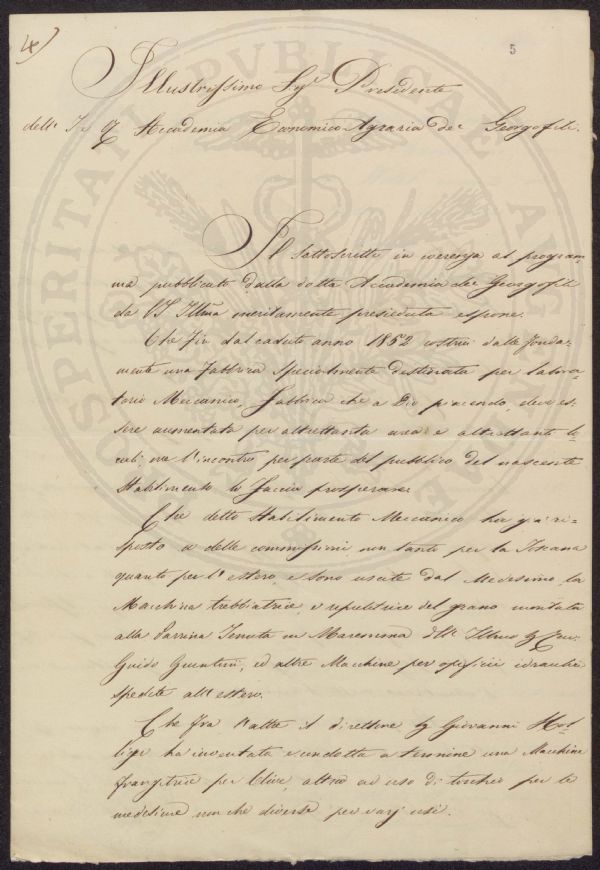 4)
5
Illustrissimo Sig.r Presidente
dell' I. e R. Accademia Economico Agraria de' Georgofili.
Il Sottoscritto in coerenza al program-
ma pubblicato dalla dotta Accademia de' Georgofili
da VS Illma meritamente presieduta espone.
Che fin dal caduto anno 1852 costruì dalle fonda-
menta una Fabbrica specialmente destinata per labora-
torio Meccanico, Fabbrica che a Dio piacendo, deve es-
sere aumentata per altrettanta area e altrettanti lo-
cali, ove l'incontro per parte del pubblico del nascente
Stabilimento lo faccia prosperare.
Che detto Stabilimento Meccanico ha già ri-
sposto a delle commissioni non tanto per la Toscana
quanto per l'estero, e sono uscite dal Medesimo la
Macchina trebbiatrice, e repulitrice del grano mandata
alla Parrina Tenuta in Maremma dell' Illmo Sig Cav.
Guido Giuntini, ed altre Macchine per opificii idraulici
spedite all' estero.
Che fra l'altre il direttore Sig Giovanni
ha inventata e condotta a termine una Macchina
frangitrice per Olive, altra ad uso di torchio per le
medesime non che diverse per varj usi.
PROSPERITATI PVBLICAE AVGENDAE